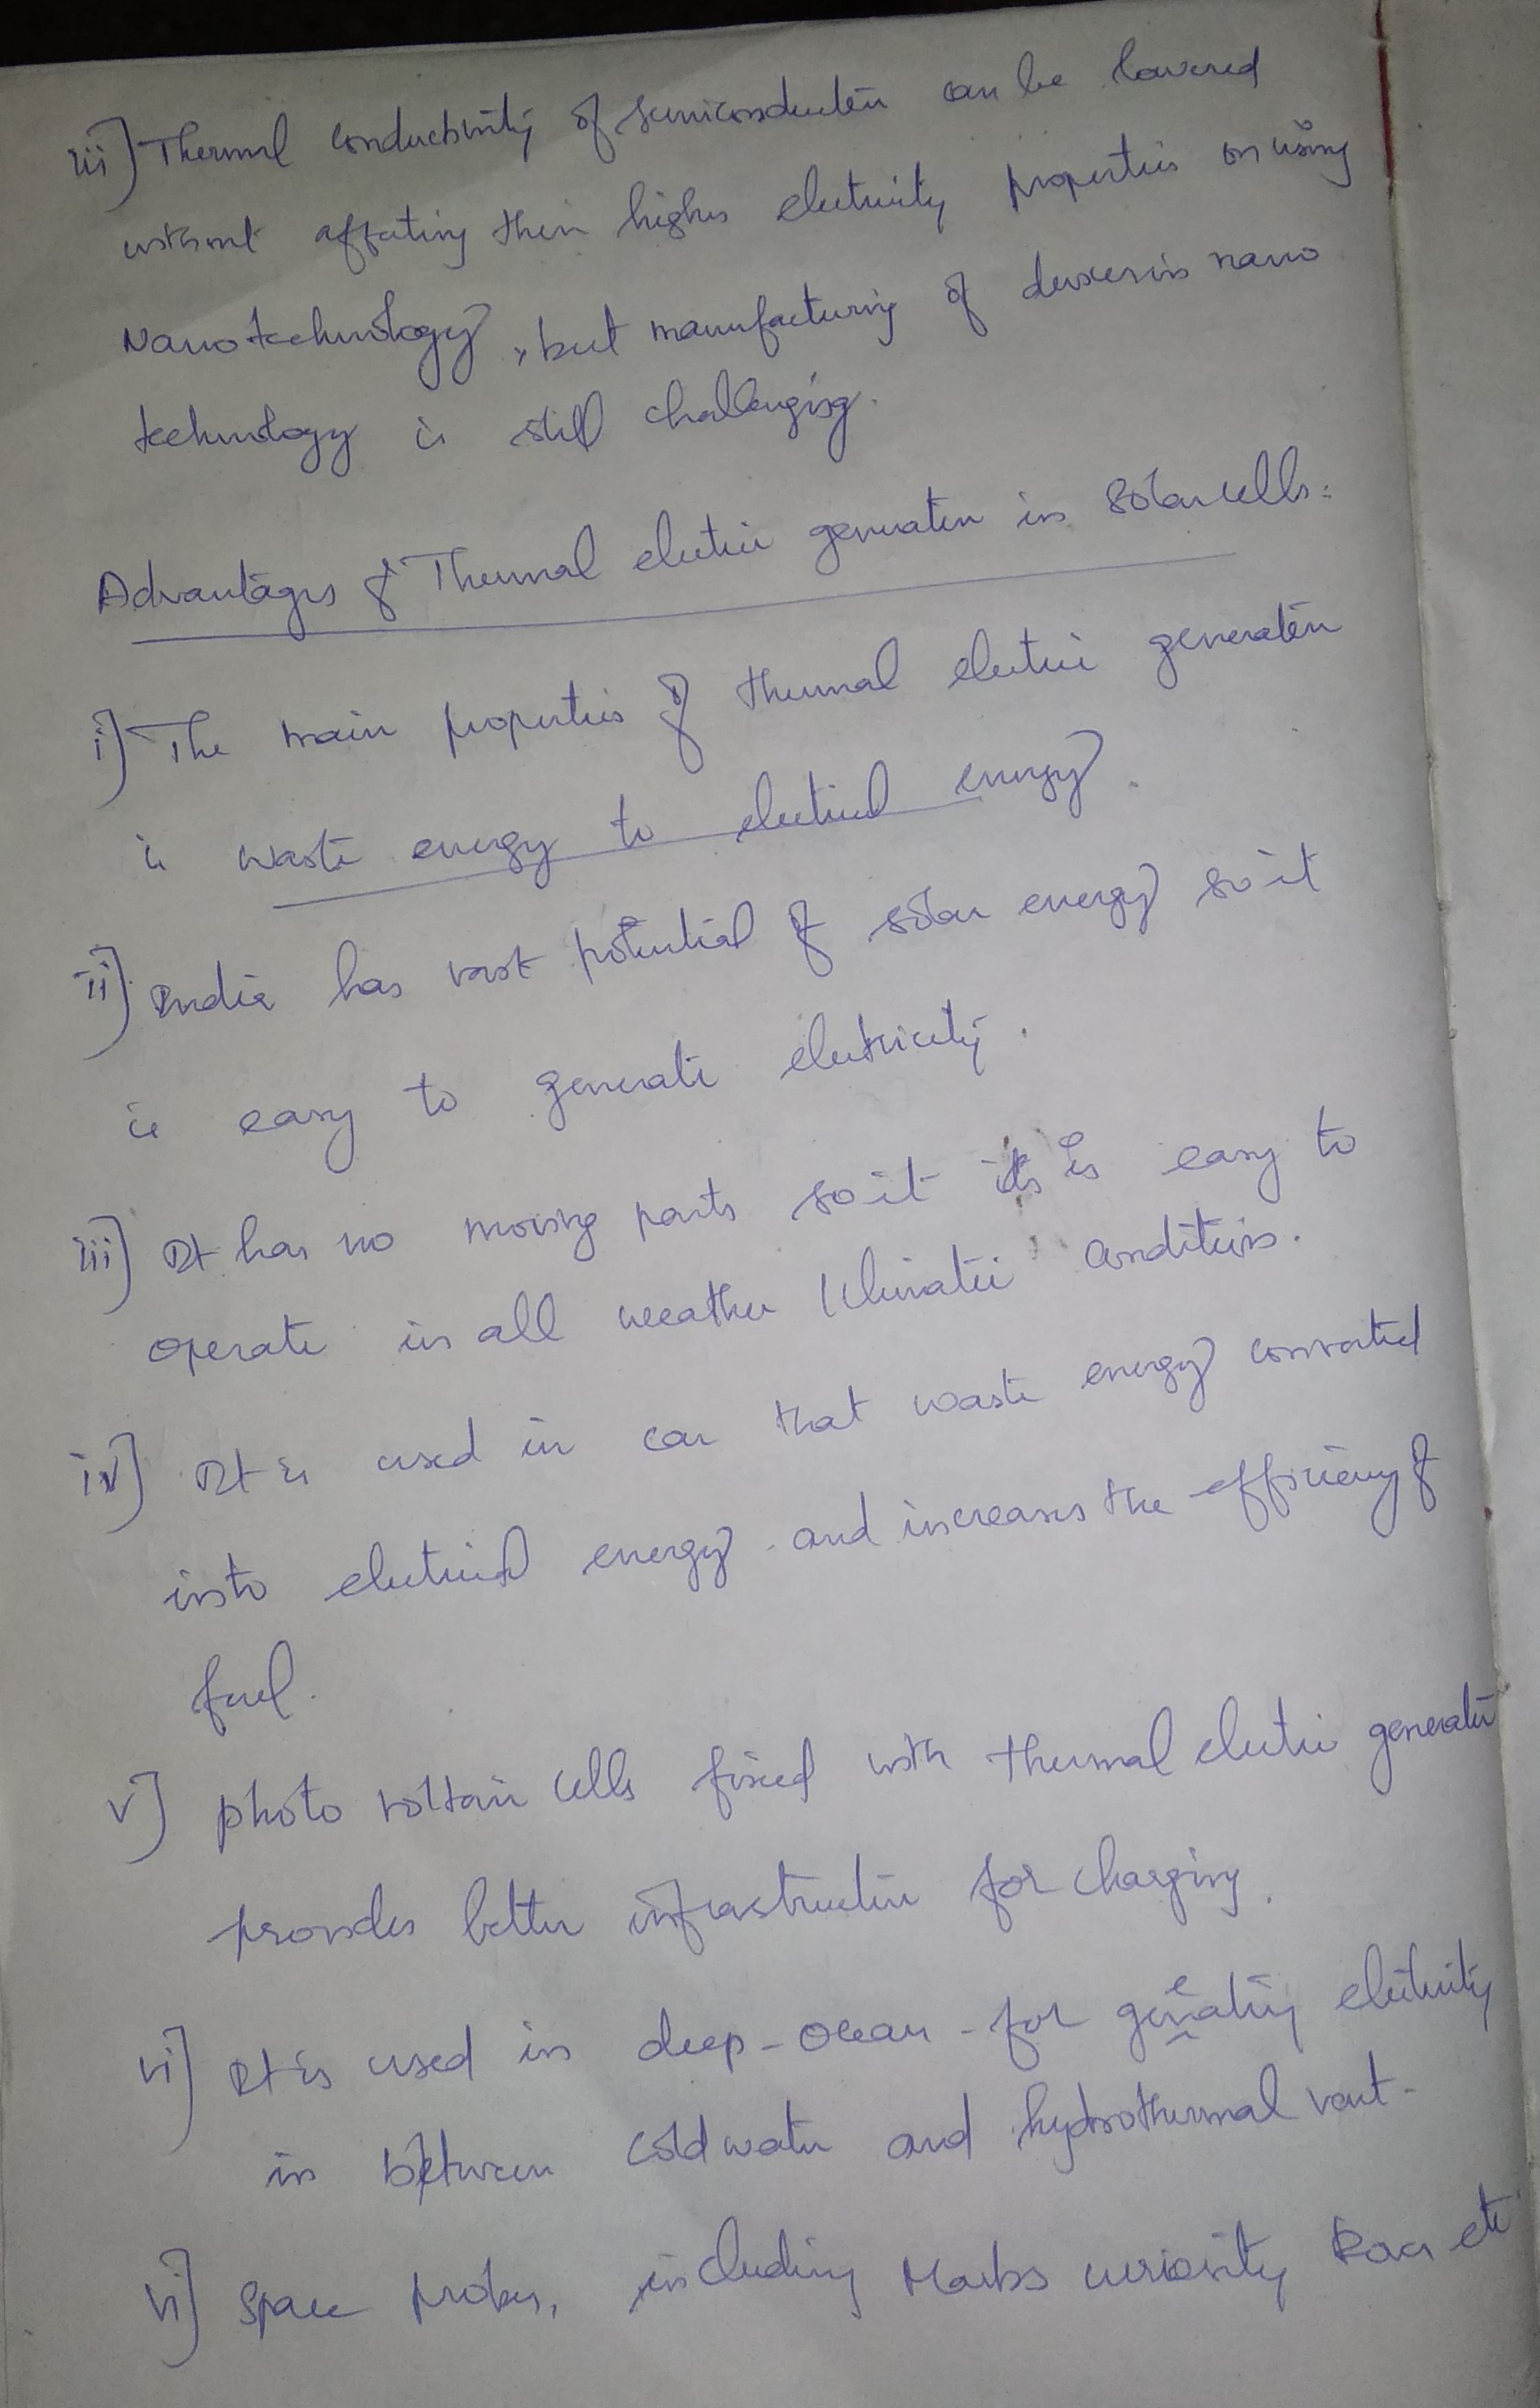 iii] Thermal conductivity of semiconductor can be lowered
without affecting their higher electricity properties on using
Nanotechnology, but manufacturing of nano
technology is still challenging.
Advantages of Thermal electric generator in Solar cells:
i] The main properties of thermal electric generator
is waste energy to electrical energy.
ii] India has vast potential of solar energy so it
is easy to generate electricity.
iii] It has no moving parts so it is easy to
operate in all weather / climatic conditions.
iv] It is used in car that waste energy converted
into electrical energy and increases the efficiency of
fuel.
v] photo voltaic cells fixed with thermal electric generator
provides better infrastructure for charging.
vi] It is used in deep-ocean for generating electricity
in between cold water and hydrothermal vent.
vi] Space probes, including Marks curiosity Rover etc